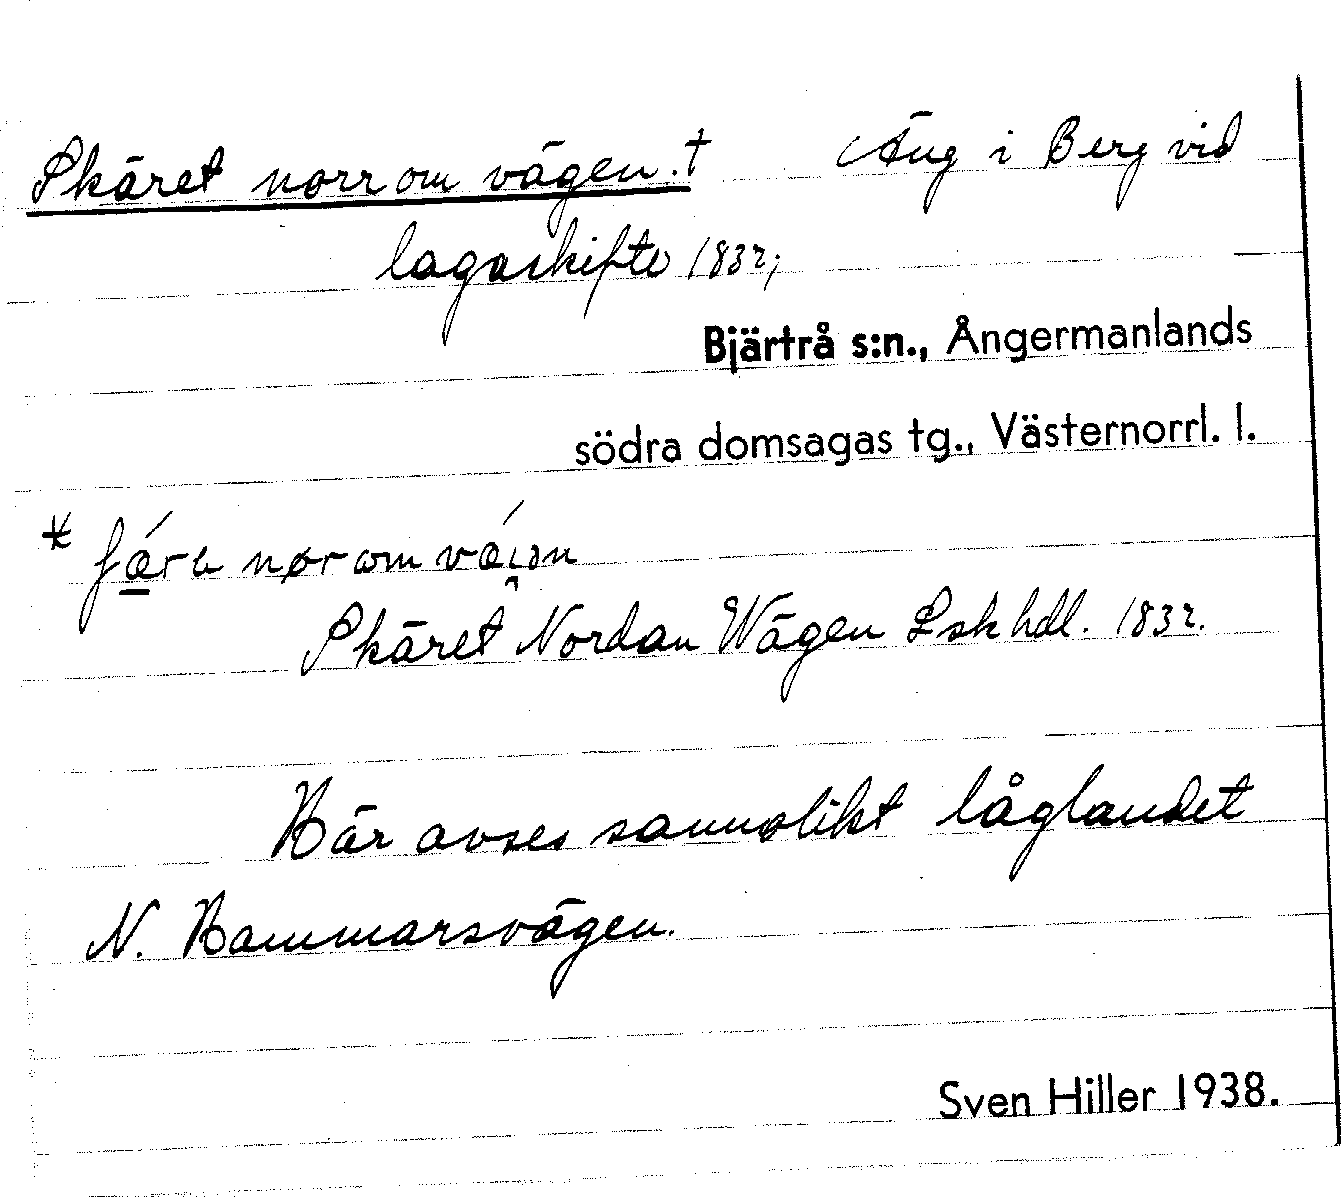 Skäret norr om vägen.† Äng i Berg vid
lagaskifte 1832;
Bjärtrå s:n., Ångermanlands
södra domsagas tg., Västernorrl. l.
Skäret Nordan Wägen Lsk hdl. 1832.
Här avses sannolikt låglandet
N. Hammarsvägen.
Sven Hiller 1938.